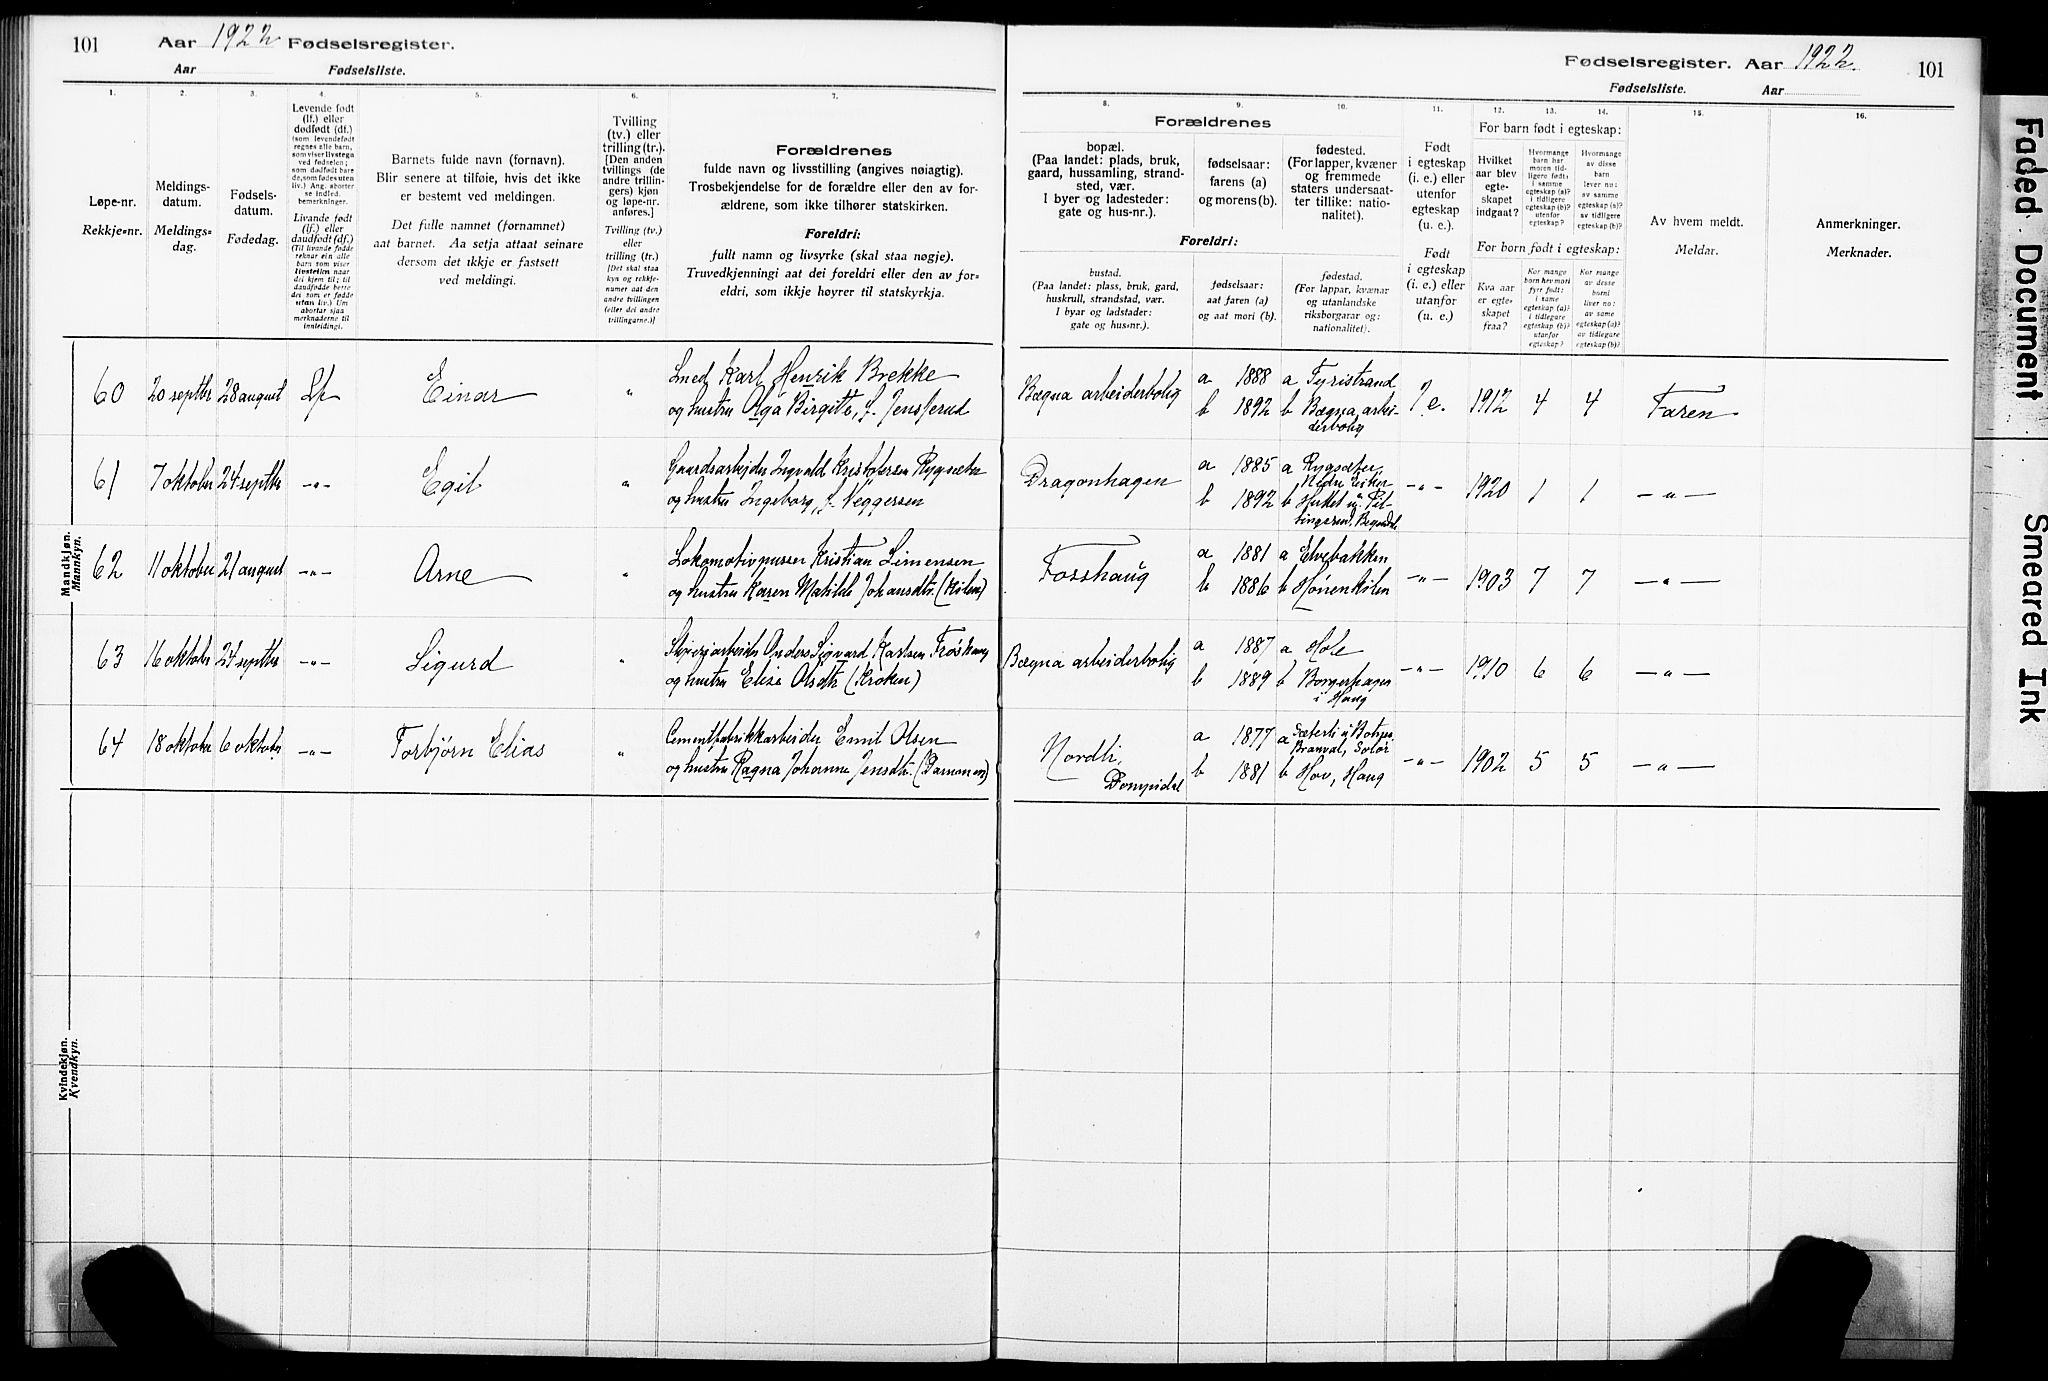 101 Aar 1922 Fødselsregister.
Aar Fødselsliste.
Fødselsregister. Aar 1922. 101
Fødselsliste. Aar
1. 2. 3. 4. 5. 6. 7.
Løpe-nr.
Rekkje-nr.
Meldings-
datum.
Meldings-
dag.
Fødsels-
datum.
Fødedag.
Levende født
(lf.) eller
dødfødt (df.)
(som levendefødt
regnes alle barn,
som viser livstegn
ved fødselen;
som dødfødt bare
de, som fødes uten
liv.) Ang. aborter
se indled.
bemerkninger.
Livande født
(lf.) eller
daudfødt (df.)
(Til livande fødde
reknar ein alle
barn som viser
livsteikn naar
dei kjem til; til
daudfødde berre
dei som er fødde
utan liv.) Um
abortar sjaa
merknaderne til
innleidingi.
Barnets fulde navn (fornavn).
Blir senere at tilføie, hvis det ikke
er bestemt ved meldingen.
Det fulle namnet (fornamnet)
aat barnet. Aa setja attaat seinare
dersom det ikkje er fastsett
ved meldingi.
Tvilling
(tv.) eller
trilling (tr.).
[Den anden
tvillings (de
andre trillin-
gers) kjøn
og løpe-nr.
anføres.]
Tvilling (tv.)
eller
trilling (tr.)
[Det skal staa
kyn og rekkje-
numer aat den
andre tvillingen
(eller dei andre
trillingarne.)]
Forældrenes
fulde navn og livsstilling (angives nøiagtig).
Trosbekjendelse for de forældre eller den av for-
ældrene, som ikke tilhører statskirken.
Foreldri:
fullt namn og livsyrke (skal staa nøgje).
Truvedkjenningi aat dei foreldri eller den av for-
eldri, som ikkje høyrer til statskyrkja.
8. 9. 10. 11. 12. 13. 14. 15. 16.
Forældrenes
bopæl.
(Paa landet: plads, bruk,
gaard, hussamling, strand-
sted, vær.
I byer og ladesteder:
gate og hus-nr.).
fødselsaar:
farens (a)
og morens (b).
fødested.
(For lapper, kvæner
og fremmede
staters undersaat-
ter tillike: natio-
nalitet).
Foreldri:
bustad.
(Paa landet: plass, bruk, gard,
huskrull, strandstad, vær.
I byar og ladstader:
gate og hus-nr.).
fødselsaar:
aat faren (a)
og aat mori (b).
fødestad.
(For lappar, kvænar
og utanlandske
riksborgarar og:
nationalitet).
Født
i egteskap
(i. e.) eller
utenfor
egteskap
(u. e.).
Født
i egteskap
(i. e.) eller
utanfor
(u. e.)
For barn født i egteskap:
Hvilket
aar blev
egte-
skapet
indgaat?
Hvormange
barn har
moren tid-
ligere født:
i samme
egteskap (a)?
i tidligere
egteskap (b)?
utenfor
egteskap?
Hvormange
av disse
barn
lever nu:
av samme
egteskap (a)?
av tidligere
egteskap (b)?
For born født i egteskap:
Kva aar
er egte-
skapet
fraa?
Kor mange
born hev mori
fyrr født:
i same
egteskap (a)?
i tidlegare
egteskap (b)?
utanfor
egteskap?
Kor mange
av desse
borni
liver no:
av same
egteskap (a)?
av tidlegare
egteskap (b)?
Av hvem meldt.
Meldar.
Anmerkninger.
Merknader.
Mandkjøn.
Mannkyn.
60 20 septbr 28 august Lf Einar " Smed Karl Henrik Brekke
og hustru Olga Birgitte, f. Jensferud
Bægna arbeiderbolig a 1888 a Tyristrand
b 1892 b Bægna arbei-
derbolig
I e. 1912 4 4 Faren
61 7 oktober 24 septbr -"- Egil " Gaardsarbeider Ingvald Kristofersen Rygsæter
og hustru Ingeborg, f. Veggersen
Dragonhagen a 1885 a Rygsæter,
Nedre Eiker
b 1892 b
-"- 1920 1 1 -"-
62 11 oktober 21 august -"- Arne " Lokomotivpusser Kristian Simensen
og hustru Karen Matilde Johansdtr. (Kilen)
Fosshaug a 1881 a Elvebakken
b 1886 b Hønenkilen
-"- 1903 7 7 -"-
63 16 oktober 24 septbr -"- Sigurd " Anders Sigvard Karlsen Frøshaug
og hustru Elise Olsdtr (Kroken)
Bægna arbeiderbolig a 1887 a Hole
b 1889 b Borgerhagen
i Haug
-"- 1910 6 6 -"-
64 18 oktober 6 oktober -"- Torbjørn Elias " Cementfabrikkarbeider Emil Olsen
og hustru Ragna Johanne Jensdtr. (Dammen)
Nordli,
Dompidal
a 1877 a Sæterli
Branval, Solør
b 1881 b Hov, Haug
-"- 1902 5 5 -"-
Kvindekjøn.
Kvendkyn.
Faded Document
Smeared Ink